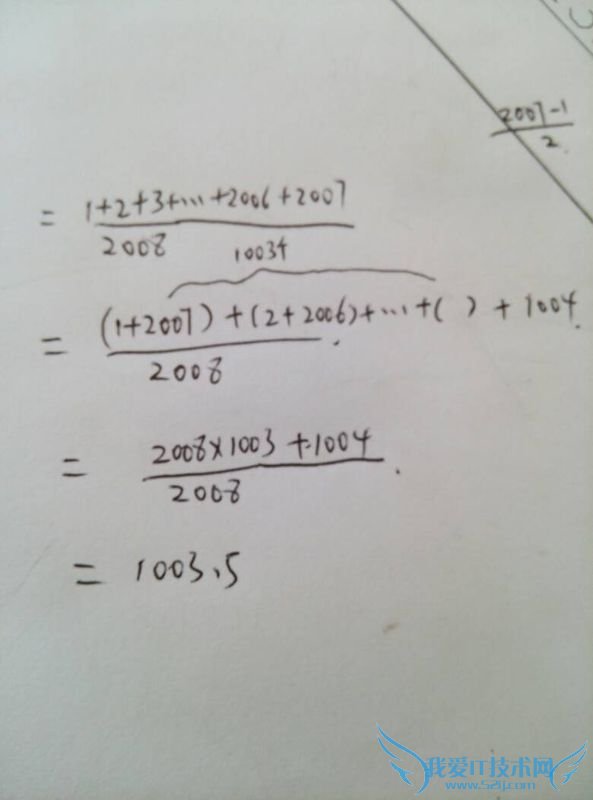 2007-1
2
= 1+2+3+…+2006+2007
2008
1003个
= (1+2007)+(2+2006)+…+( )+1004
2008
= 2008×1003+1004
2008
= 1003.5
我爱IT技术网
www.52ij.com